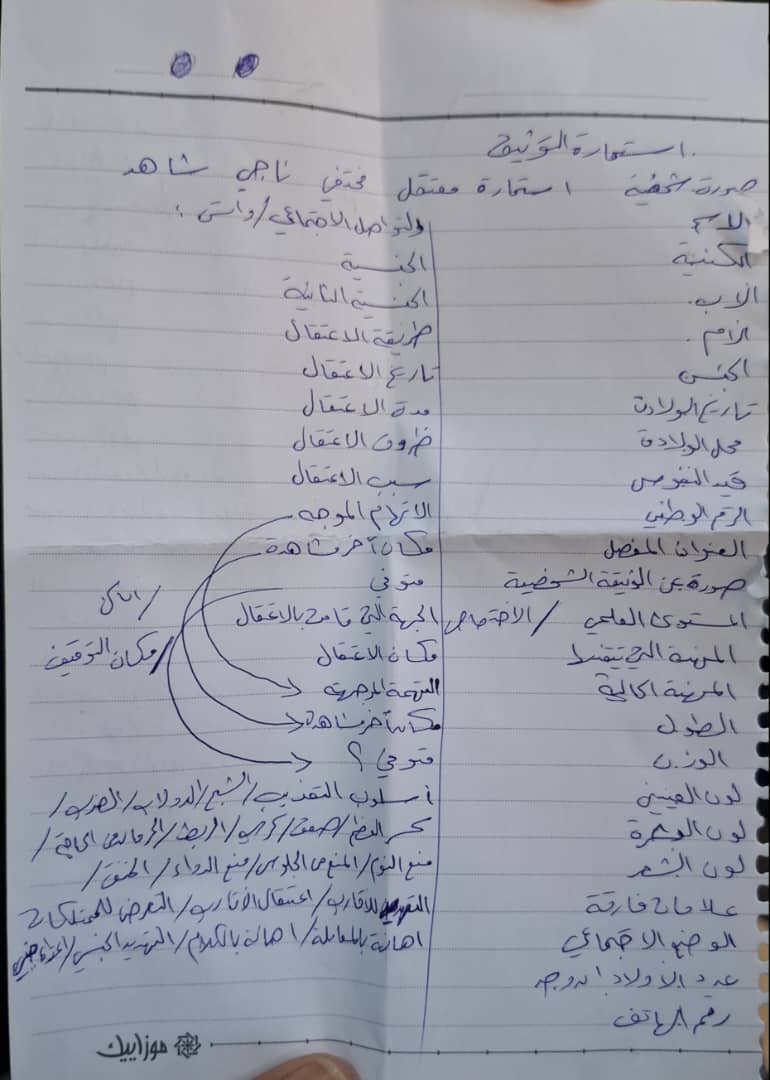 استمارة التوثيق
صورة شخصية استمارة معتقل مختفي ناجي شاهد
الاسم
الكنية
الاب
الام
الجنس
تاريخ الولادة
محل الولادة
قيد النفوس
الرقم الوطني
العنوان المفصل
صورة عن الوثيقة الشخصية
المستوى العلمي / الاختصاص
المهنة التي
المهنة الحالية
الطول
الوزن
لون العينين
لون البشرة
لون الشعر
علامات فارقة
الوضع الاجتماعي
عدد الاولاد
رقم الهاتف
التواصل الاجتماعي/واتس :
الجنسية
الجنسية الثانية
طريقة الاعتقال
تاريخ الاعتقال
مدة الاعتقال
ظروف الاعتقال
سبب الاعتقال
الاتهام الموجه
مكان آخر مشاهدة
متوفي
الجهة التي قامت بالاعتقال
مكان الاعتقال / مكان التوقيف
التهمة الموجهة
مكان آخر مشاهدة
متوفي ؟
أسلوب التعذيب/الشبح/الدولاب/الضرب/
كسر العظم/صعق/
منع النوم/المنع من الجلوس/منع الدواء/الخنق/
للاقارب/اعتقال الأقارب/التعرض للممتلكات
اهانة بالمعاملة/اهانة بالكلام/التهديد الجنسي/
موزاييك